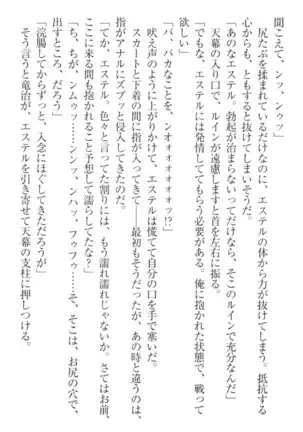 聞こえて、ンッ、ンゥッ」
尻たぶを揉まれているだけなのに、エステルの体から力が抜けてしまう。抵抗する
心からも、ともすると抜けてしまいそうだ。
「あのなエステル。勃起が治まらないってだけなら、そこのルインで充分なんだ」
天幕の入り口で、ルインが遠慮しますと首を左右に振る。
「でもな、エステルには発情しててもらう必要がある。俺に抱かれた状態で、戦って
欲しい」
「バ、バカなことを、ンオォオォオオォッッ!?」
吠え声のように上がりかけて、エステルは慌てて自分の口を手で塞いだ。
スカートと下着の間に指が入ってきて――最初もそうだったが、あの時と違うのは、
指がアナルにズブッと侵入してきたのだ。
「てか、エステル。色々と言ってた割りには、もう濡れ濡れじゃないか。さてはお前、
ここに来る間も抱かれること予想して濡らしてたな?」
「ち、ちが、ンムゥッ……シンッ、ンハッ、フゥフゥ……そ、そこは、お尻の穴で、
出すところ、だろう」
「浣腸してからずっと、入念にほぐしてきただろうが」
そう言うと竜治が、エステルを引き寄せて天幕の支柱に押しつける。